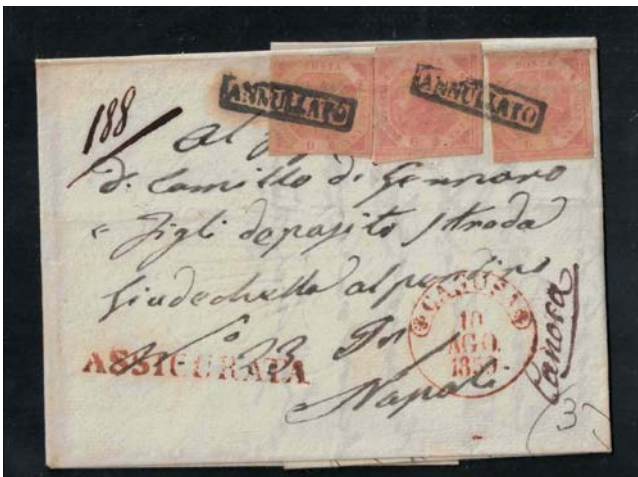 POSTA POSTA
ANNULLATO ANNULLATO
G G
188
al
di Camillo di Gennaro
e figli deposito Strada
Giudechella al pendino
N° 23 In
Napoli
ASSICURATA
CANOSA
10
AGO.
1859
Canosa
(3)